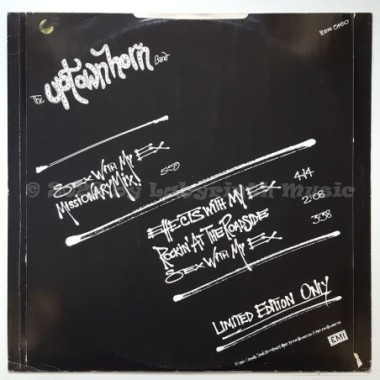 The Uptown Horn Band
Sex With My Ex
(Missionary Mix) 5:59
Effects With My Ex 4:14
Rockin' At The Roadside 2:08
Sex With My Ex 3:38
Limited Edition Only
EMI